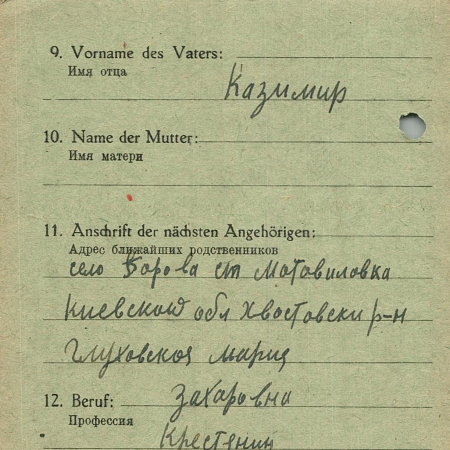 9. Vorname des Vaters:
Имя отца
Казимир
10. Name der Mutter:
Имя матери
11. Anschrift der nächsten Angehörigen:
Адрес ближайших родственников
село Борова ст Мотовиловка
Киевской обл Хвостовски р-н
Глуховская Мария
12. Beruf: Захаровна
Профессия
Крестенин